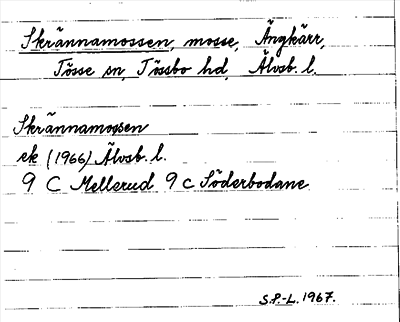 Skrännamossen, mosse, Ängkärr,
Tösse sn, Tössbo hd, Älvsb. l.
Skrännamossen
ek (1966) Älvsb. l.
9 C Mellerud 9 c Söderbodane
S.P.-L. 1967.